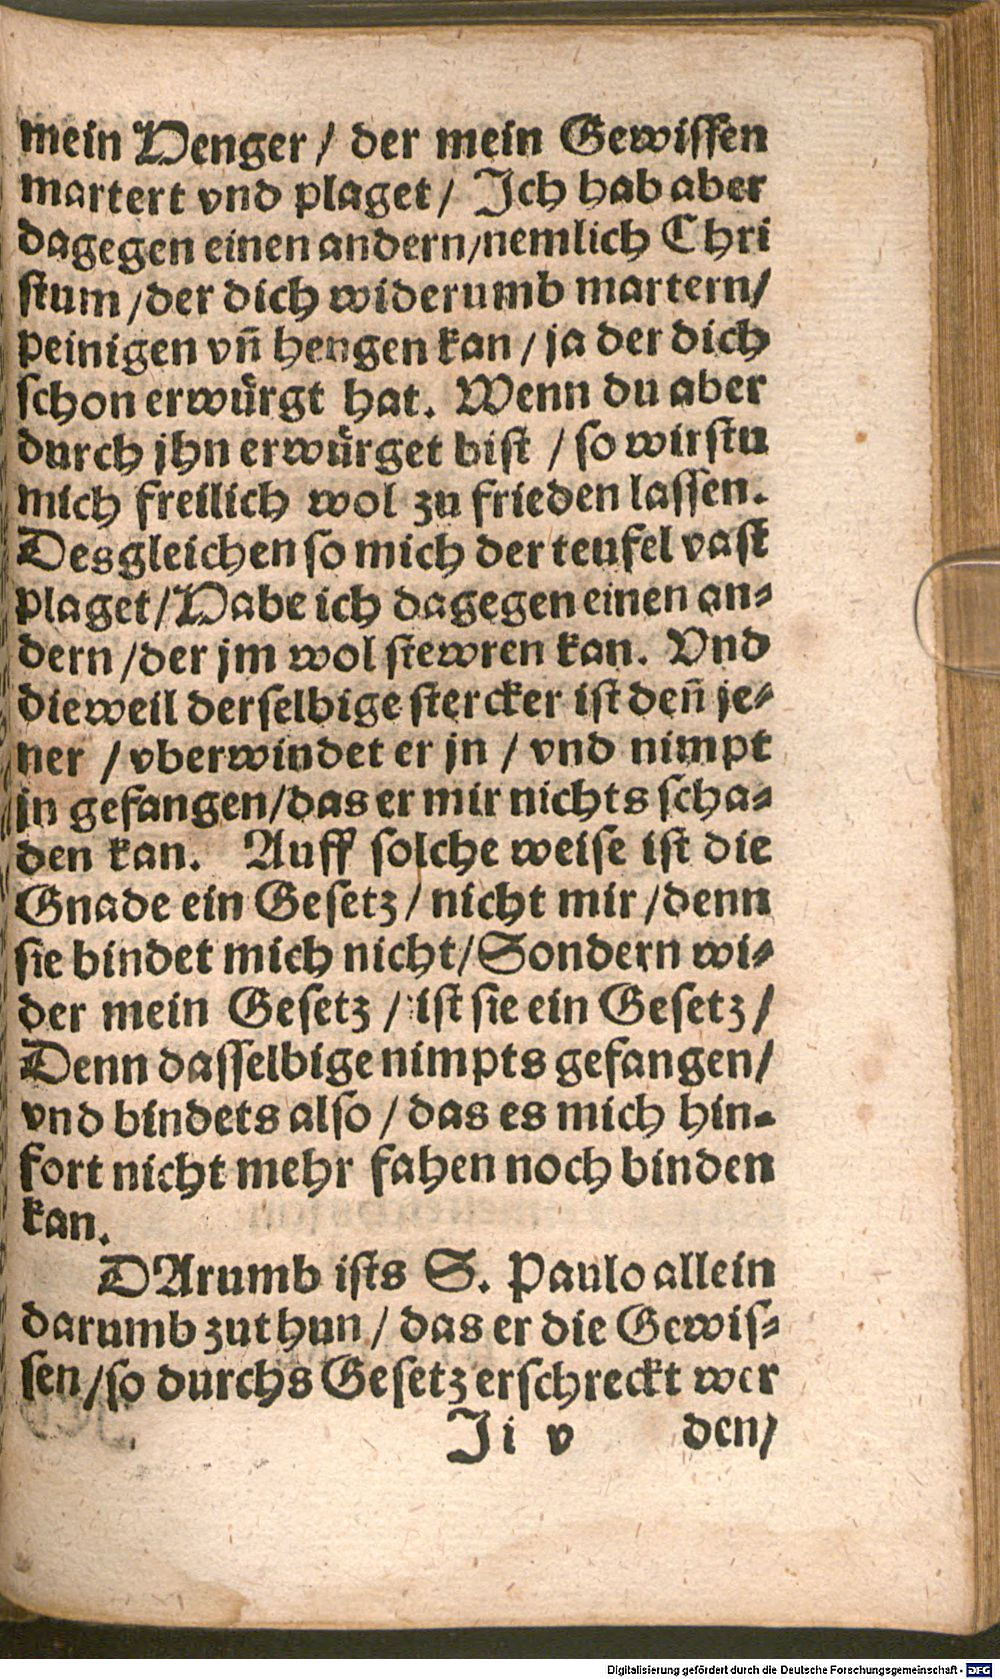 mein Henger / der mein Gewissen
martert vnd plaget / Ich hab aber
dagegen einen andern / nemlich Chri
stum / der dich widerumb martern /
peinigen vn̄ hengen kan / ja der dich
schon erwürgt hat. Wenn du aber
durch jhn erwürget bist / so wirstu
mich freilich wol zu frieden lassen.
Desgleichen so mich der teufel vast
plaget / Habe ich dagegen einen an-
dern / der jm wol stewren kan. Vnd
dieweil derselbige stercker ist den̄ je-
ner / vberwindet er jn / vnd nimpt
jn gefangen / das er mir nichts scha-
den kan. Auff solche weise ist die
Gnade ein Gesetz / nicht mir / denn
sie bindet mich nicht / Sondern wi-
der mein Gesetz / ist sie ein Gesetz /
Denn dasselbige nimpts gefangen /
vnd bindets also / das es mich hin-
fort nicht mehr fahen noch binden
kan.
DArumb ists S. Paulo allein
darumb zuthun / das er die Gewis-
sen / so durchs Gesetz erschreckt wer
Ji v den /
Digitalisierung gefördert durch die Deutsche Forschungsgemeinschaft - DFG